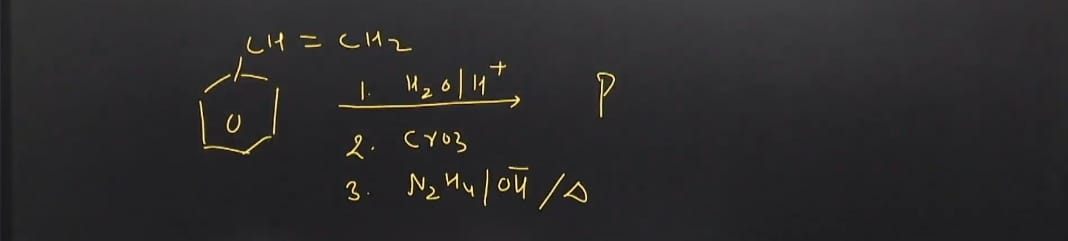 CH = CH2
1. H2O/H+
P
2. CrO3
3. N2H4/OH̄/Δ